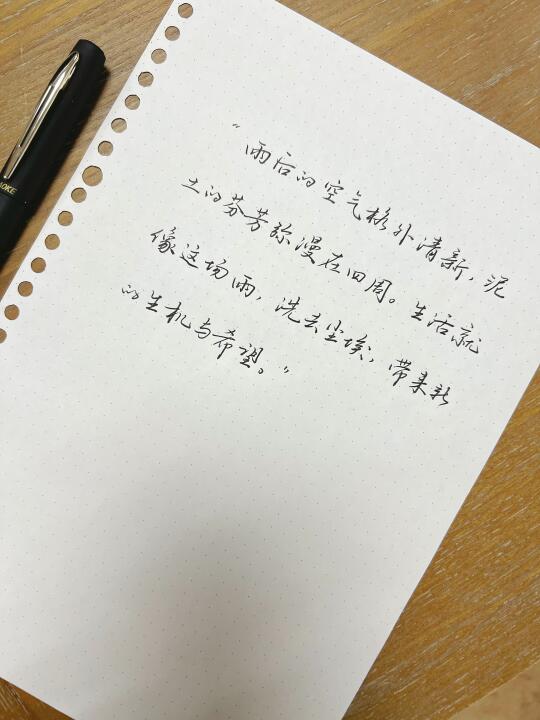 "雨后的空气格外清新，泥
土的芬芳弥漫在四周。生活就
像这场雨，洗去尘埃，带来新
的生机与希望。"
AOKE